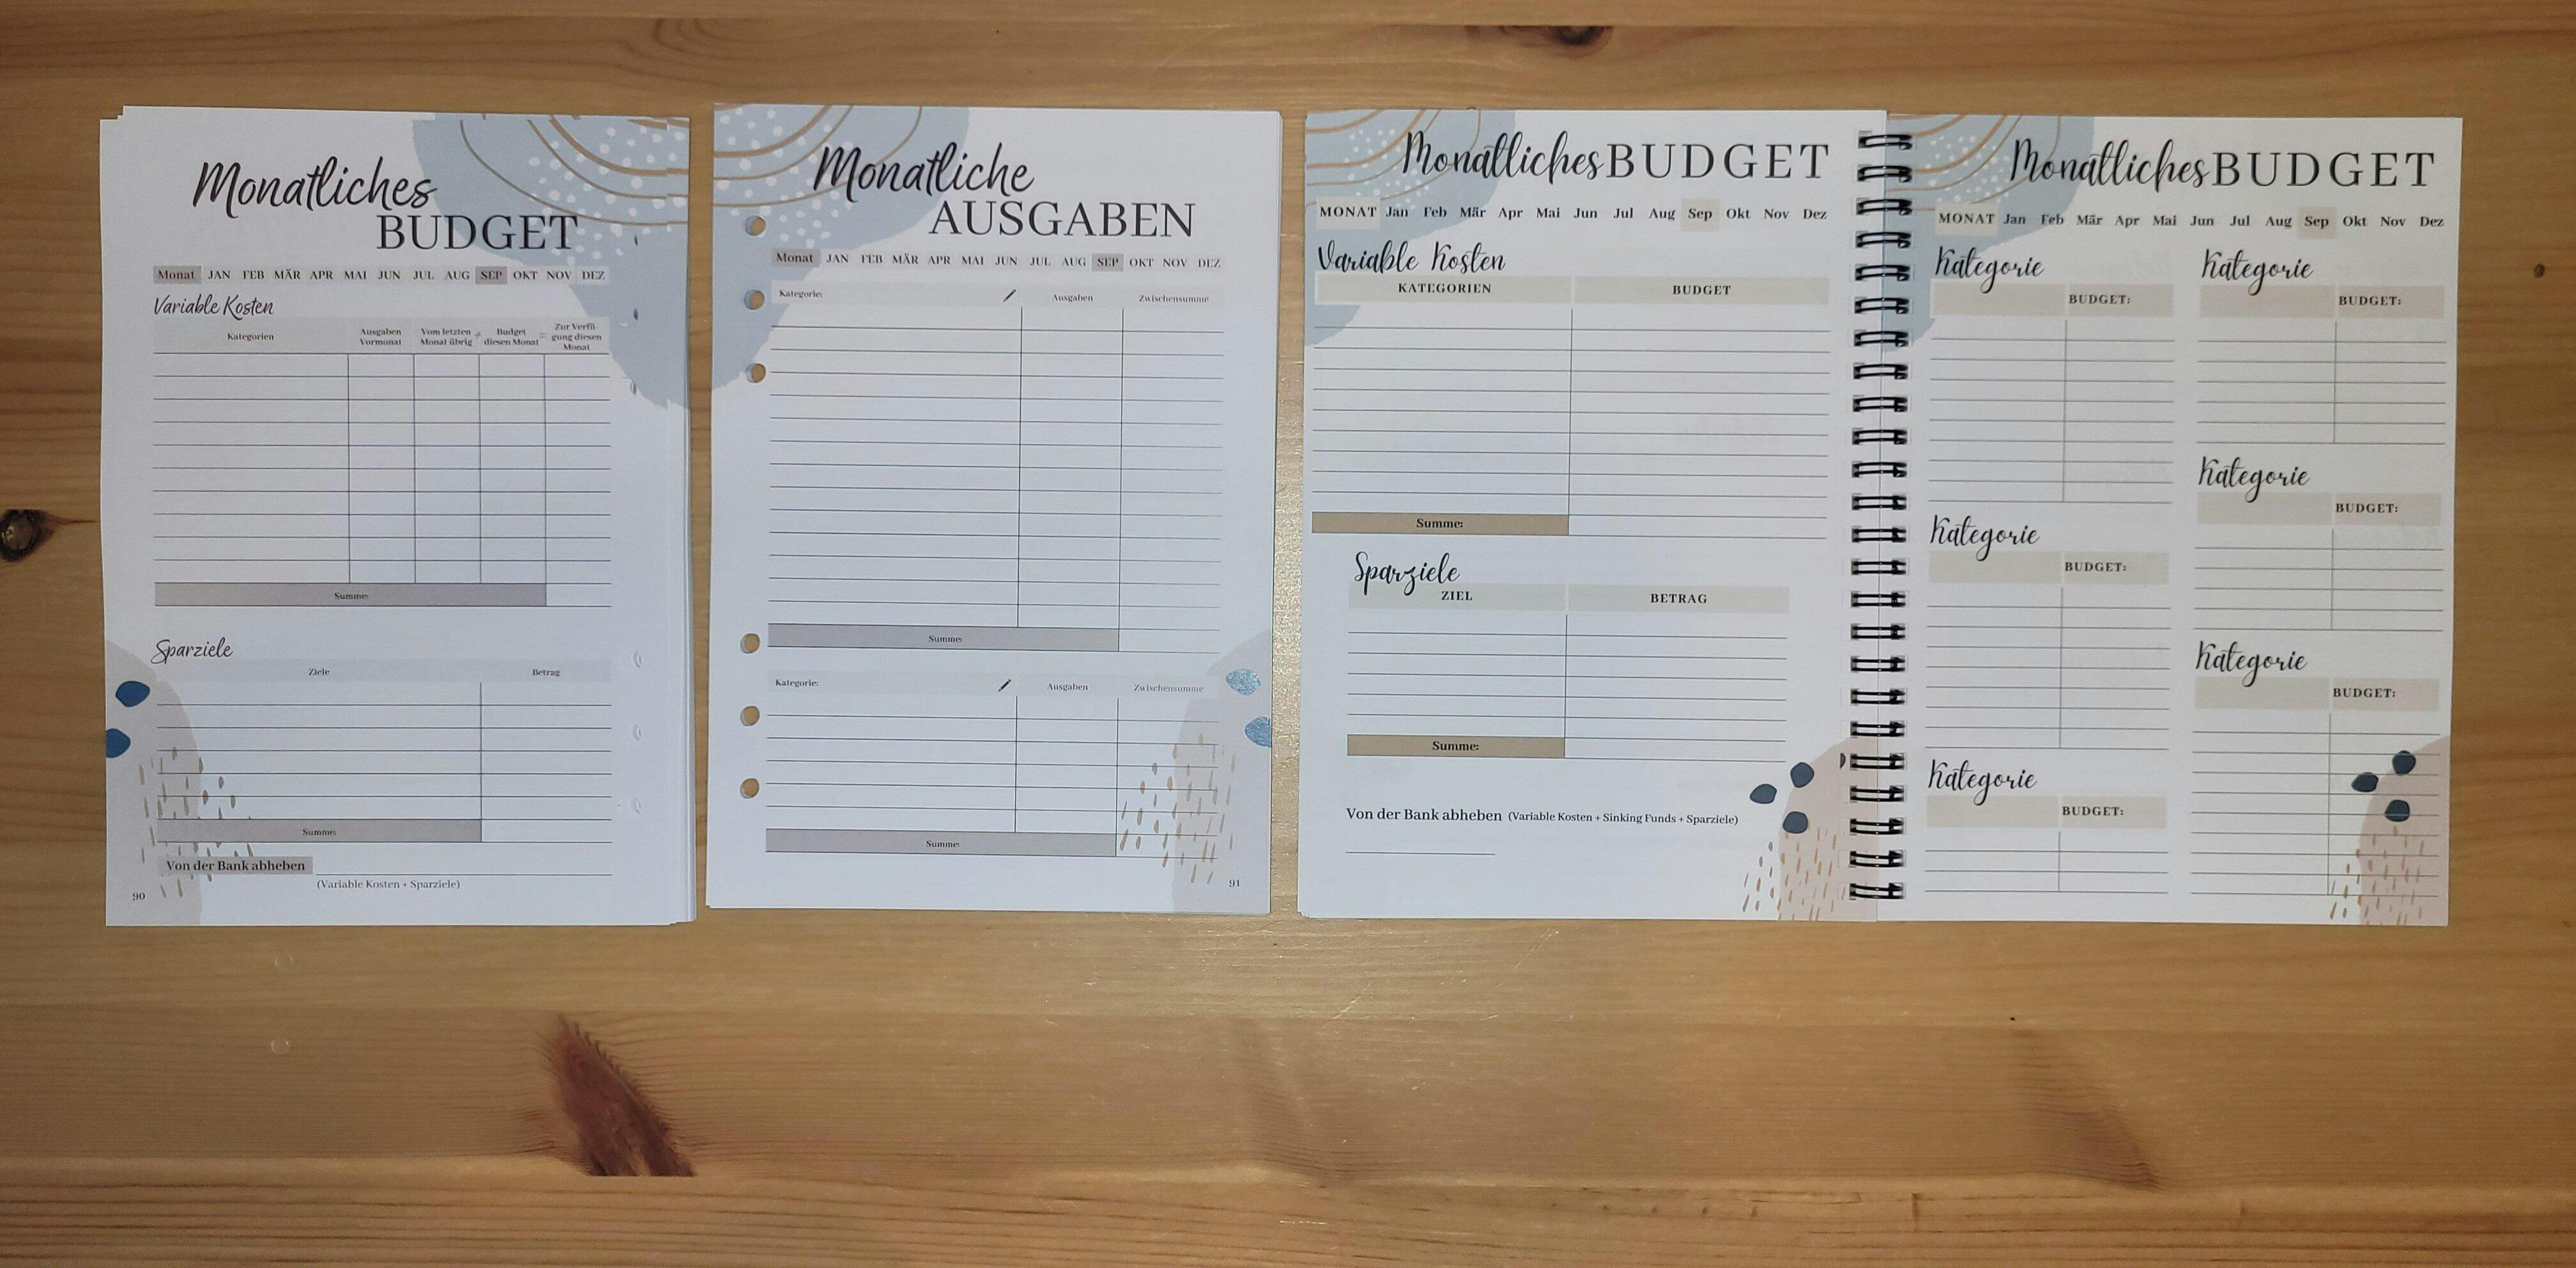 Monatliches
BUDGET
Monat JAN FEB MÄR APR MAI JUN JUL AUG SEP OKT NOV DEZ
Variable Kosten
Kategorien
Ausgaben
Vormonat
Vom letzten
Monat übrig
+
Budget
diesen Monat
=
Zur Verfü-
gung diesen
Monat
Summe:
Sparziele
Ziele Betrag
Summe:
Von der Bank abheben
(Variable Kosten + Sparziele)
90
Monatliche
AUSGABEN
Monat JAN FEB MÄR APR MAI JUN JUL AUG SEP OKT NOV DEZ
Kategorie: Ausgaben Zwischensumme
Summe:
Kategorie: Ausgaben Zwischensumme
Summe:
91
Monatliches BUDGET
MONAT Jan Feb Mär Apr Mai Jun Jul Aug Sep Okt Nov Dez
Variable Kosten
KATEGORIEN BUDGET
Summe:
Sparziele
ZIEL BETRAG
Summe:
Von der Bank abheben (Variable Kosten + Sinking Funds + Sparziele)
Monatliches BUDGET
MONAT Jan Feb Mär Apr Mai Jun Jul Aug Sep Okt Nov Dez
Kategorie
BUDGET:
Kategorie
BUDGET:
Kategorie
BUDGET:
Kategorie
BUDGET:
Kategorie
BUDGET:
Kategorie
BUDGET: